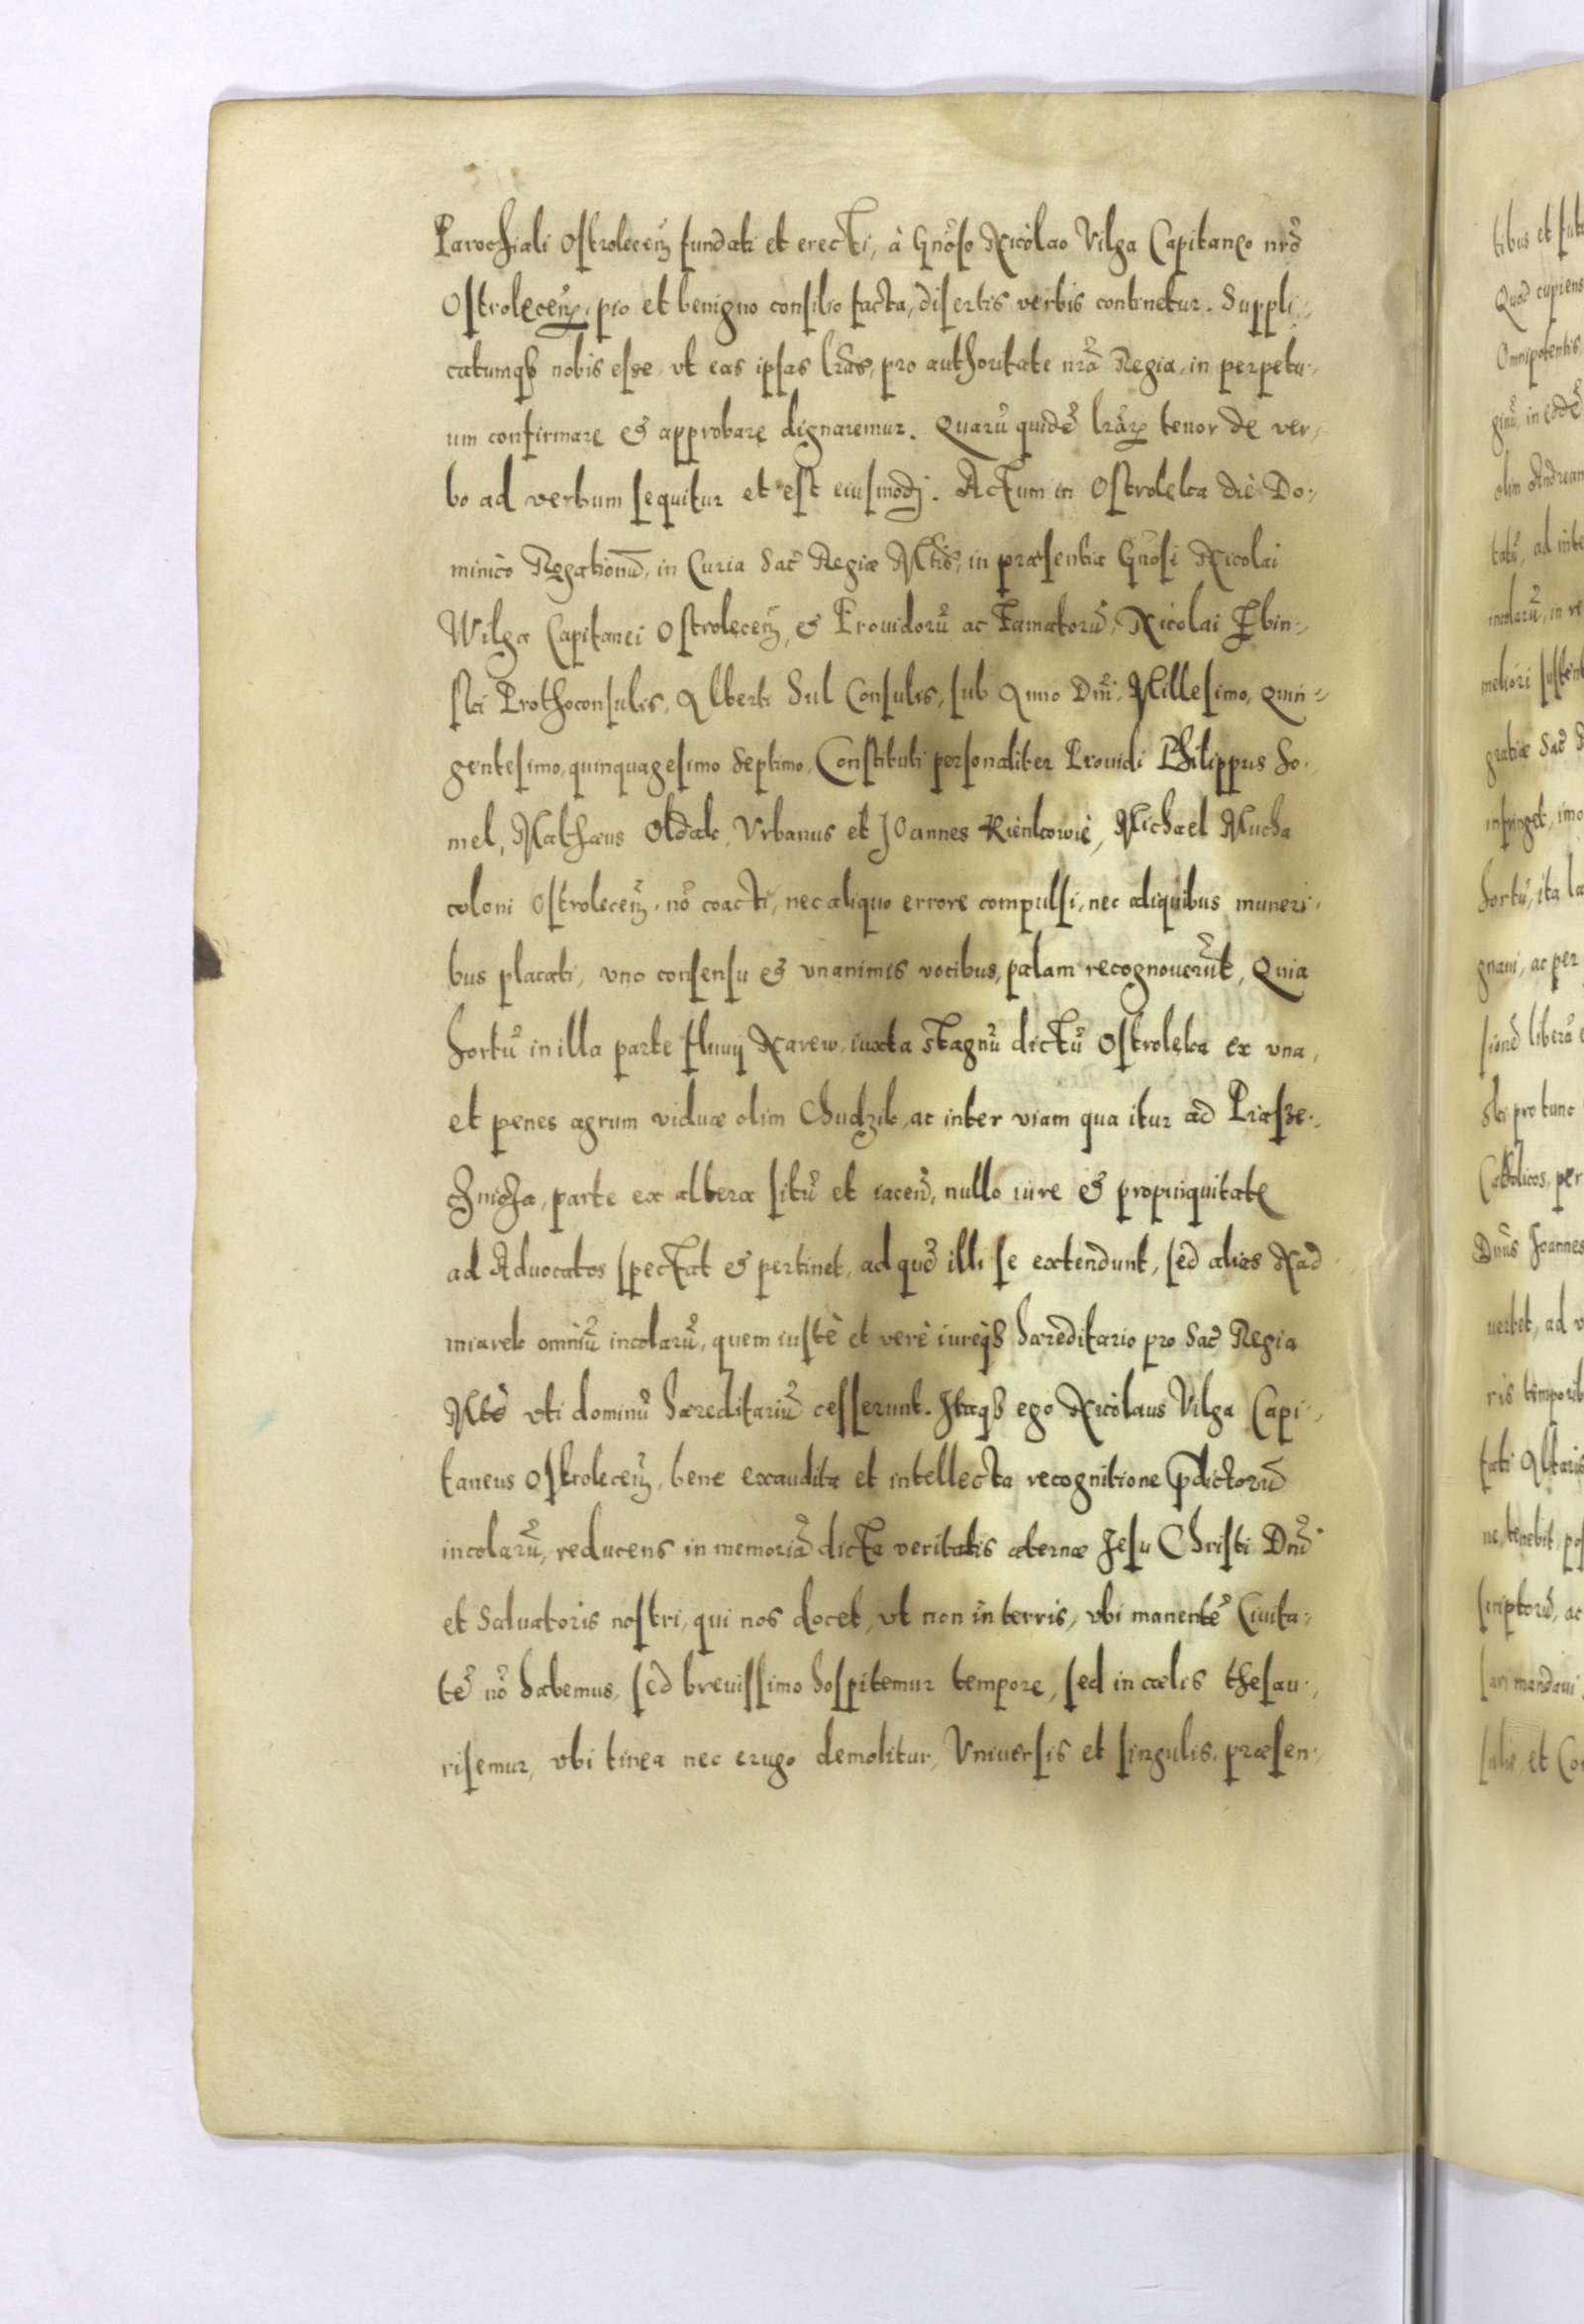 Parochiali Ostrolecen̄ fundati et erecti, à Gnoso Nicòlao Vilga Capitaneo nr̃o
Ostrolecen̄, pio et benigno consilio facta, disertis verbis continetur. Suppli-
catumqȝ nobis esse, vt eas ipsas lr̃as, pro authoritate nr̃a Regia, in perpetu-
um confirmare & approbare dignaremur. Quarũ quidẽ lr̃arꝫ tenor de ver-
bo ad verbum sequitur et est eiusmodj. Actum in Ostrolęka diè Do-
minicò Rogationũ, in Curia Sac̃ Regiæ Mtis̃, in præsentia Gnosi Nicolai
Wilga Capitanei Ostrolęcen̄, & Prouidorũ ac Famatorũ, Nicolai
ski Prothoconsulis, Alberti Sul Consulis, sub Anno Dnĩ. Millesimo, Quin-
gentesimo, quinquagesimo Septimo, Constituti personaliter Prouidi Philippus Ho-
mel, Mathæus Oldak, Vrbanus et Joannes Kienkowiè, Michael Mucha
coloni Ostrolecen̄. nõ coacti, nec aliquo errore compulsi, nec aliquibus muneri-
bus placati, vno consensu & vnanimis vocibus, palam recognouerũt, Quia
hortũ in illa parte fluuij Narew, iuxta stagnũ dictũ Ostrolęka ex vna,
et penes agrum viduæ olim Chudzik, ac inter viam qua itur ad Prasze-
parte ex altera sitũ et iacen̄, nullo iure & propinquitate
ad Aduocatos spectat & pertinet, ad quẽ illi se extendunt, sed alias Nad
miarek omniũ incolarũ, quem iustè et verè iureqȝ hæreditario pro Sac̃ Regia
Mtè vti dominũ hæreditariũ cesserunt. Itaqȝ ego Nicòlaus Vilga Capi-
taneus Ostrolecen̄, bene exaudita et intellecta recognitione p̃dictorũ
incolarũ, reducens in memoriã dicta veritatis æternæ Jesu Christi Dnĩ
et Saluatoris nostri, qui nos docet, vt non in terris, vbi manentẽ Ciuita-
tẽ nõ habemus, sed breuissimo hospitemur tempore, sed in cælis thesau-
risemur, vbi tinea nec erugo demolitur, Vniuersis et singulis, præsen-